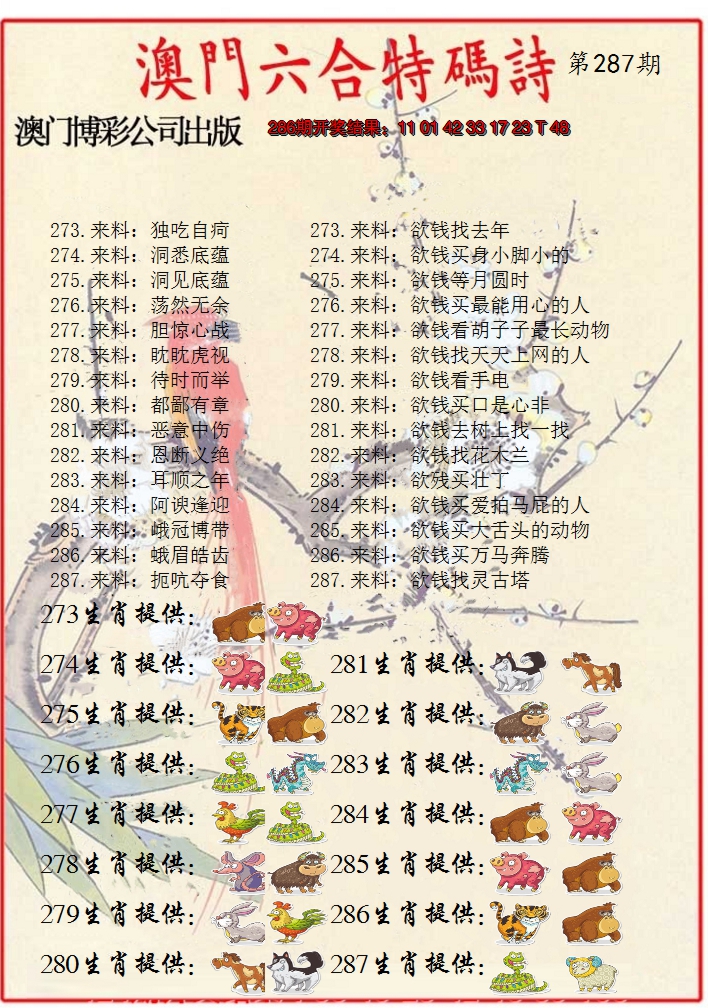 澳門六合特碼詩 第287期
澳门博彩公司出版 286期开奖结果：11 01 42 33 17 23 T 46
273.来料：独吃自疴 273.来料：欲钱找去年
274.来料：洞悉底蕴 274.来料：欲钱买身小脚小的
275.来料：洞见底蕴 275.来料：欲钱等月圆时
276.来料：荡然无余 276.来料：欲钱买最能用心的人
277.来料：胆惊心战 277.来料：欲钱看胡子子最长动物
278.来料：眈眈虎视 278.来料：欲钱找天天上网的人
279.来料：待时而举 279.来料：欲钱看手电
280.来料：都鄙有章 280.来料：欲钱买口是心非
281.来料：恶意中伤 281.来料：欲钱去树上找一找
282.来料：恩断义绝 282.来料：欲钱找花木兰
283.来料：耳顺之年 283.来料：欲残买壮丁
284.来料：阿谀逢迎 284.来料：欲钱买爱拍马屁的人
285.来料：峨冠博带 285.来料：欲钱买大舌头的动物
286.来料：蛾眉皓齿 286.来料：欲钱买万马奔腾
287.来料：扼吭夺食 287.来料：欲钱找灵古塔
273生肖提供：
274生肖提供： 281生肖提供：
275生肖提供： 282生肖提供：
276生肖提供： 283生肖提供：
277生肖提供： 284生肖提供：
278生肖提供： 285生肖提供：
279生肖提供： 286生肖提供：
280生肖提供： 287生肖提供：